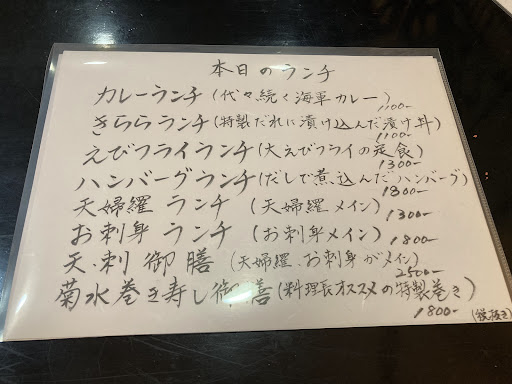 本日のランチ
カレーランチ(代々続く海軍カレー)
1100-
きららランチ(特製だれに漬け込んだ漬け丼)
1100-
えびフライランチ(大えびフライの定食)
1300-
ハンバーグランチ(だしで煮込んだハンバーグ)
1300-
天婦羅 ランチ (天婦羅メイン)
1300-
お刺身 ランチ (お刺身メイン)
1800-
天・刺 御膳 (天婦羅、お刺身がメイン)
2500-
菊水巻き寿し御膳(料理長オススメの特製巻き)
1800-
(税抜き)